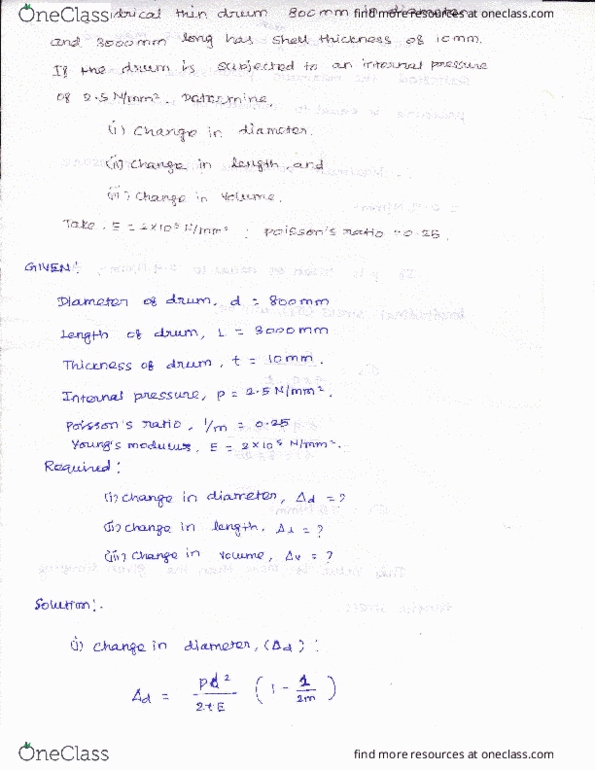 OneClass
drical thin drum 800mm in
find more resources at oneclass.com
and 3000mm long has shell thickness of 10mm.
If the drum is subjected to an internal pressure
of 2.5 N/mm². Determine,
(i) Change in diameter.
(ii) Change in length, and
(iii) Change in volume.
Take, E = 2×10⁵ N/mm² : poisson's ratio = 0.25.
GIVEN:
Diameter of drum, d = 800mm
Length of drum, L = 3000mm
Thickness of drum, t = 10mm.
Internal pressure, p = 2.5 N/mm².
poisson's ratio, 1/m = 0.25
Young's modulus, E = 2×10⁵ N/mm².
Required:
(i) change in diameter, Δd = ?
(ii) change in length, Δl = ?
(iii) change in volume, Δv = ?
Solution:.
(i) change in diameter, (Δd) :
Δd = pd²/2tE (1 - 1/2m)
OneClass
find more resources at oneclass.com